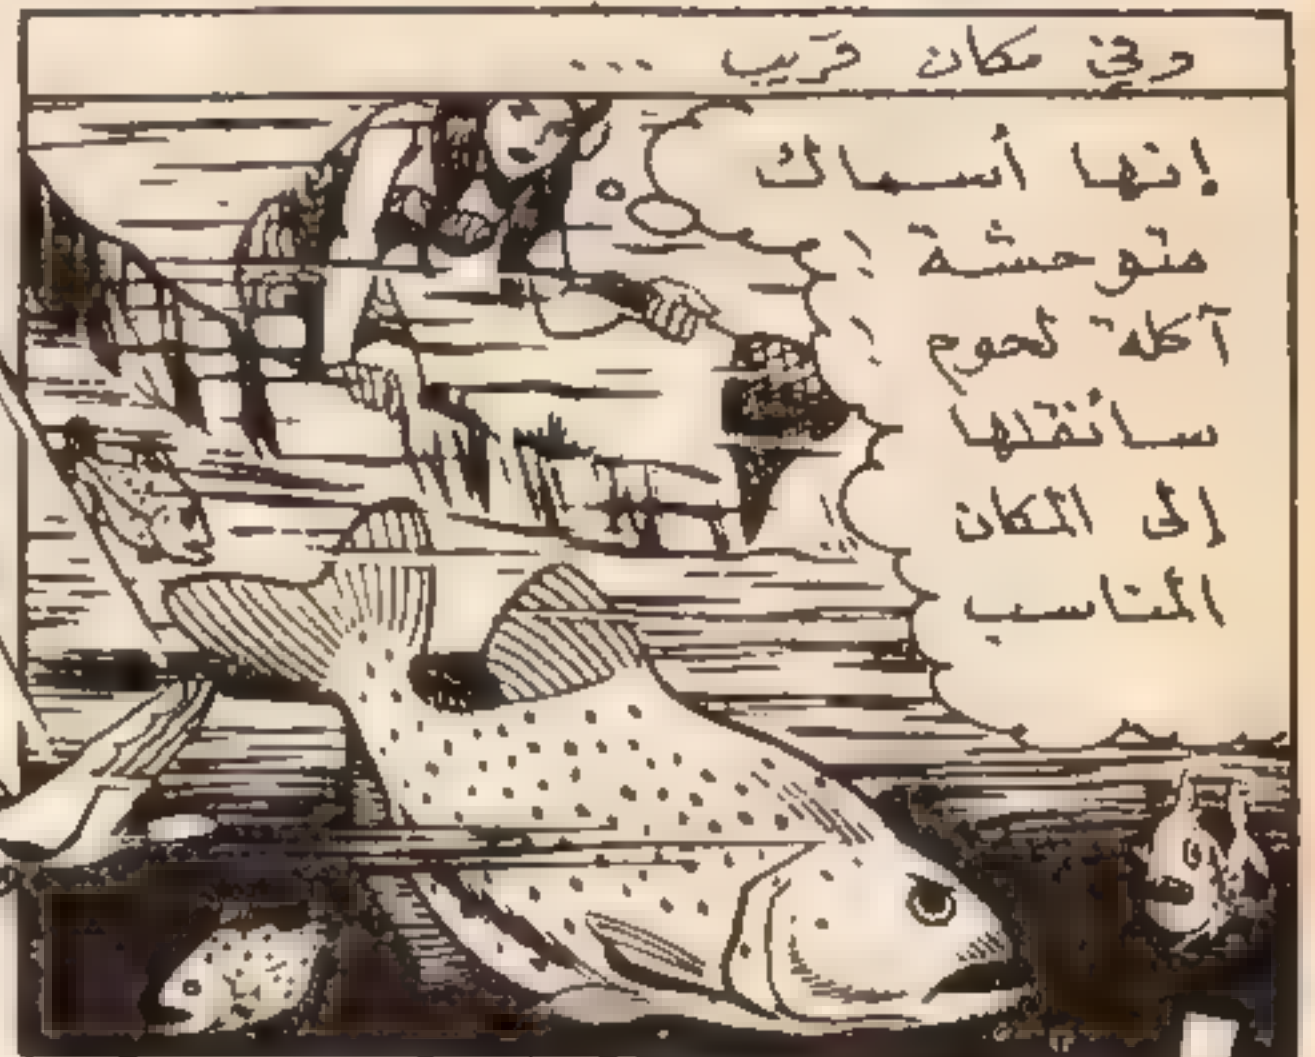 وفي مكان قريب ...
إنها أسماك
متوحشة
آكلة لحوم
سأنقلها
إلى المكان
المناسب